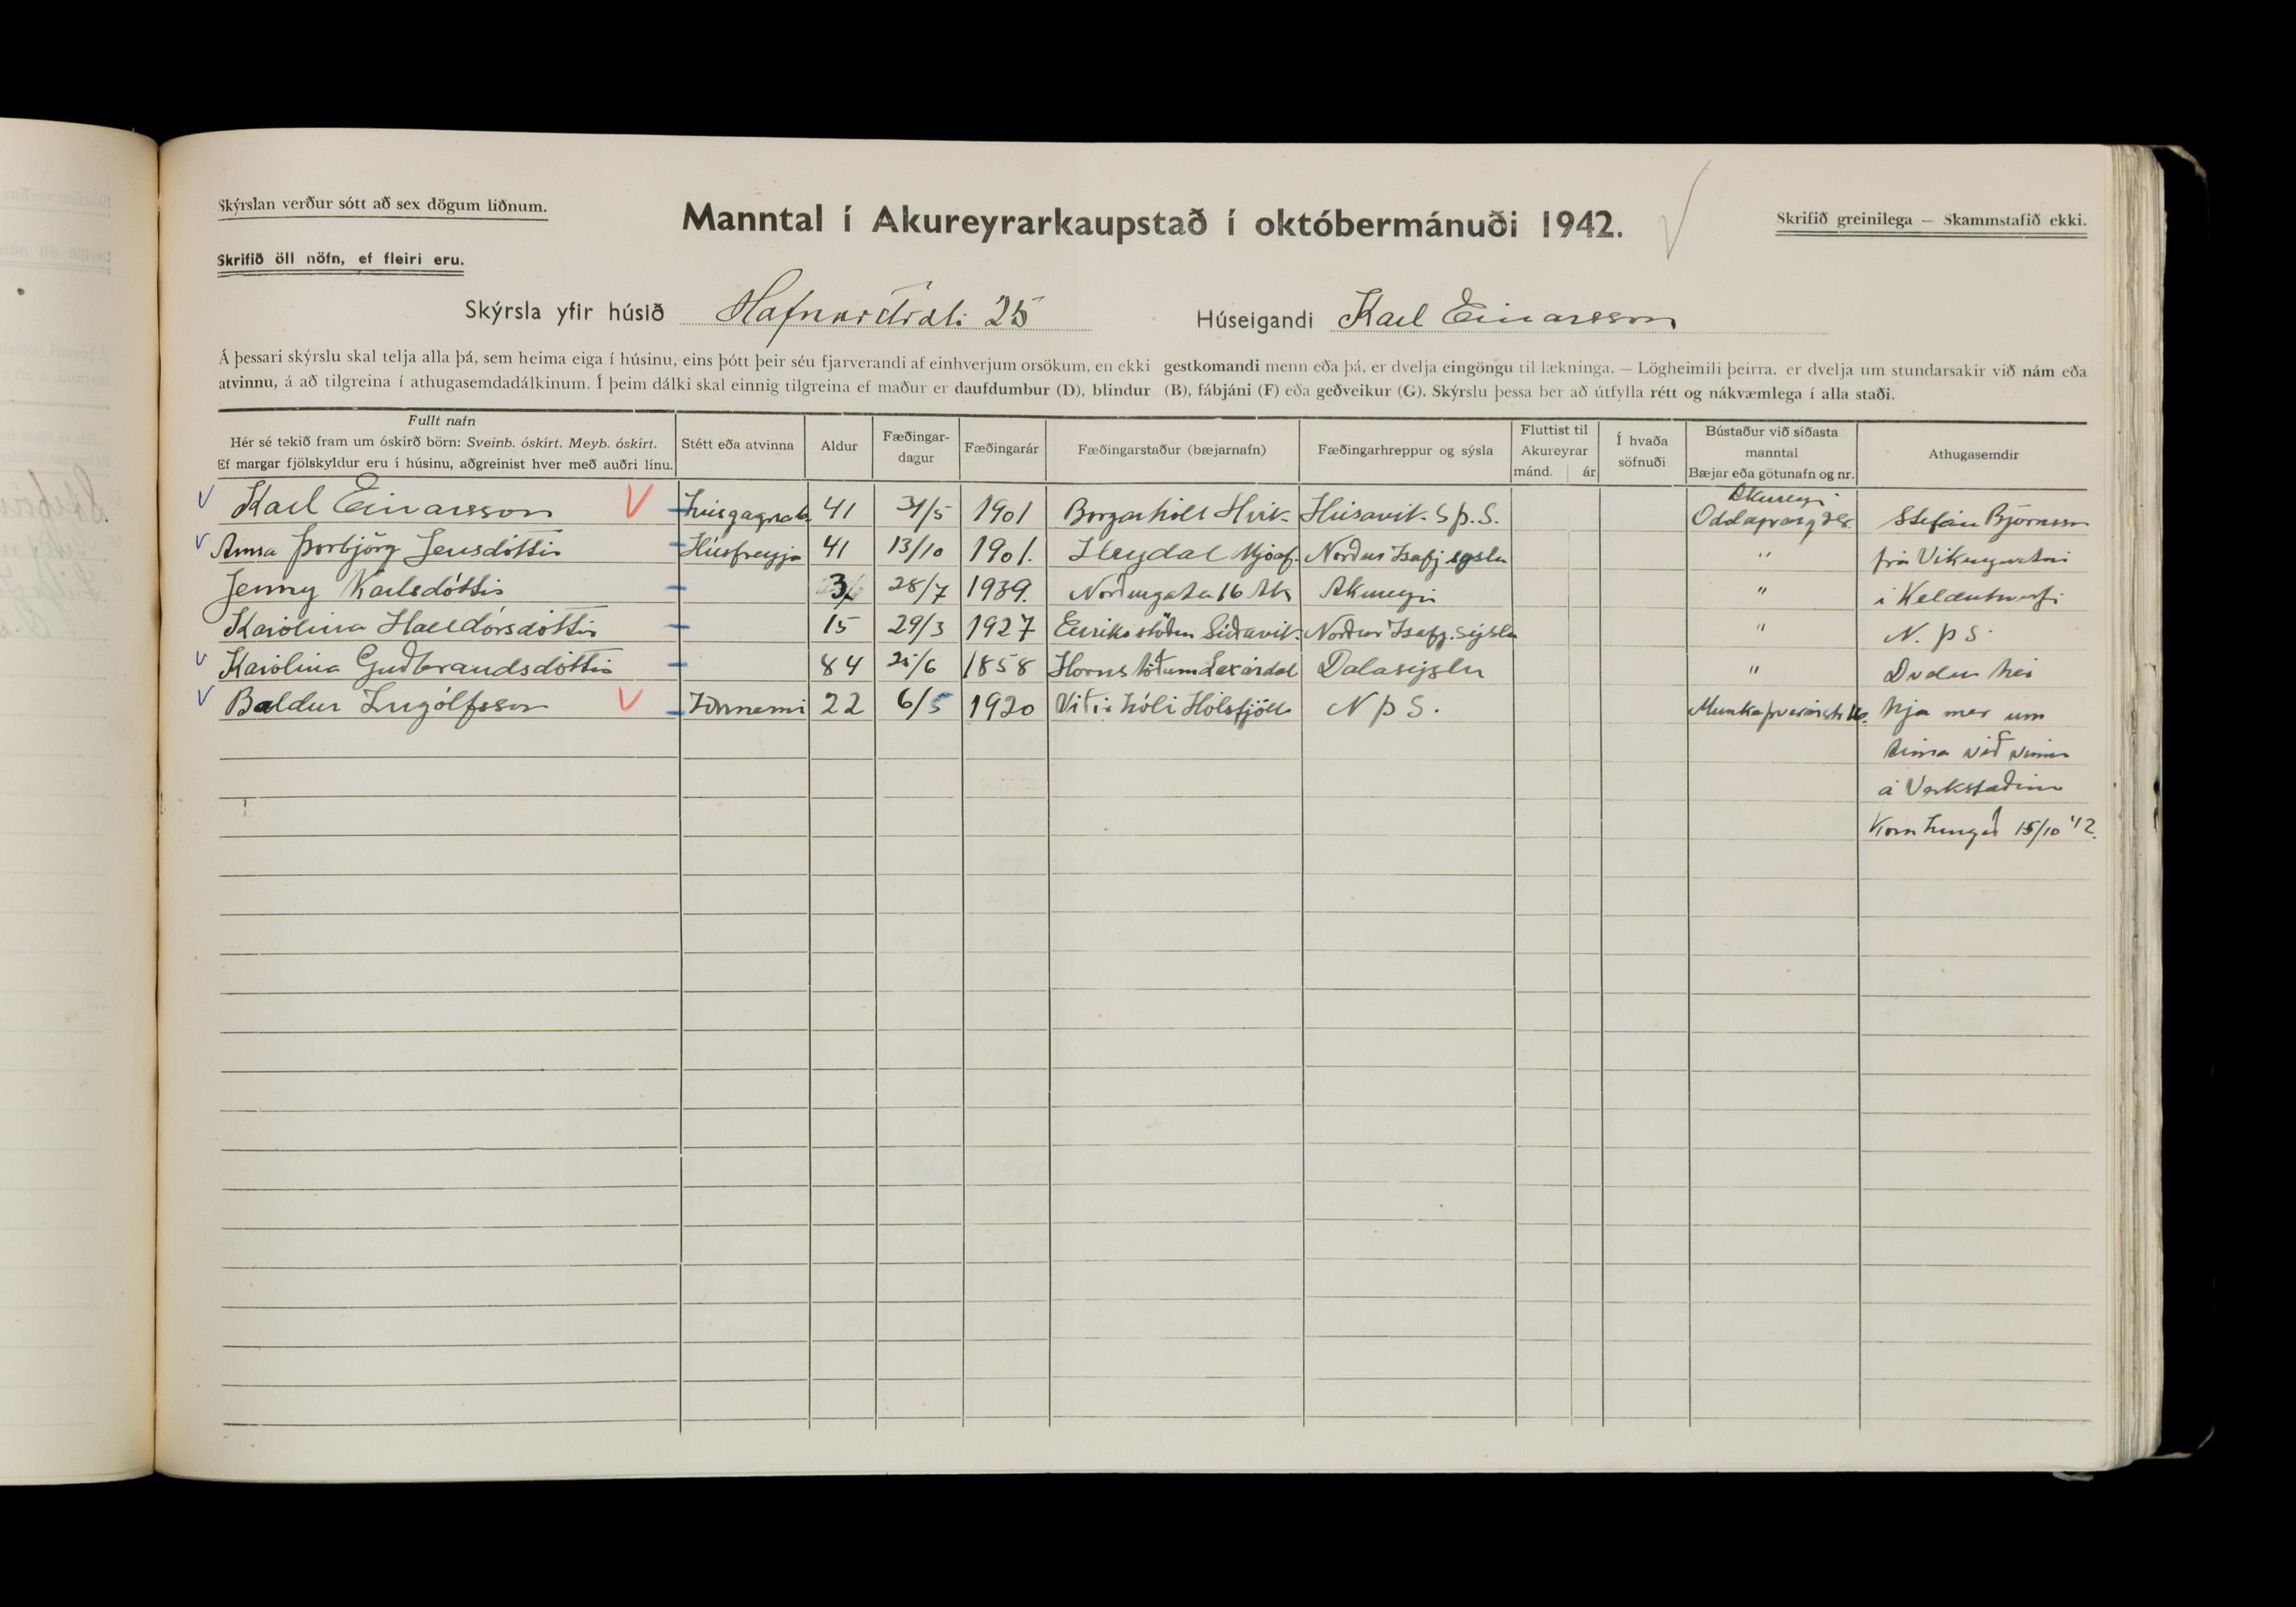 Skýrslan verður sótt að sex dögum liðnum.
Manntal í Akureyrarkaupstað í októbermánuði 1942.
Skrifið greinilega — Skammstafið ekki.
Skrifið öll nöfn, ef fleiri eru.
Skýrsla yfir húsið Hafnarstræti 25 Húseigandi Karl Einarsson
Á þessari skýrslu skal telja alla þá, sem heima eiga í húsinu, eins þótt þeir séu fjarverandi af einhverjum orsökum, en ekki gestkomandi menn eða þá, er dvelja eingöngu til lækninga. — Lögheimili þeirra. er dvelja um stundarsakir við nám eða
atvinnu, á að tilgreina í athugasemdadálkinum. Í þeim dálki skal einnig tilgreina ef maður er daufdumbur (D), blindur (B), fábjáni (F) eða geðveikur (G). Skýrslu þessa ber að útfylla rétt og nákvæmlega í alla staði.
Fullt nafn
Hér sé tekið fram um óskírð börn: Sveinb. óskírt. Meyb. óskírt.
Ef margar fjölskyldur eru í húsinu, aðgreinist hver með auðri línu.
Stétt eða atvinna
Aldur
Fæðingar-
dagur
Fæðingarár
Fæðingarstaður (bæjarnafn)
Fæðingarhreppur og sýsla
Fluttist til
Akureyrar
mánd. ár
Í hvaða
söfnuði
Bústaður við síðasta
manntal
Bæjar eða götunafn og nr.
Athugasemdir
Akureyri
Karl Einarsson 41 31/5 1901 Borgarhóll Hvík. Húsavík. S þ. S. Stefán Björnsson
Anna Þorbjörg Jensdóttir Húsfreyja 41 13/10 1901. Heydal Mjóaf. Norður Ísafj sýslu " frá Víkingavatni
Jenny Karlsdóttir 3 28/7 1939. Norðurgata 16 Ak Akureyri " í Kelduhverfi
Karólína Halldórsdóttir 15 29/3 1927 Norður Ísafj. sýslu " N. þ S.
Karólína Guðbrandsdóttir 84 25/6 1858 Laxárdal Dalasýslu "
Baldur Ingólfsson Iðnnemi 22 6/5 1920 Víðirhóli Hólsfjöll N þ S. Munkaþverárstr 16. hjá mér um
tíma við
á Verkstæðinu
Kom hingað 15/10 '42.